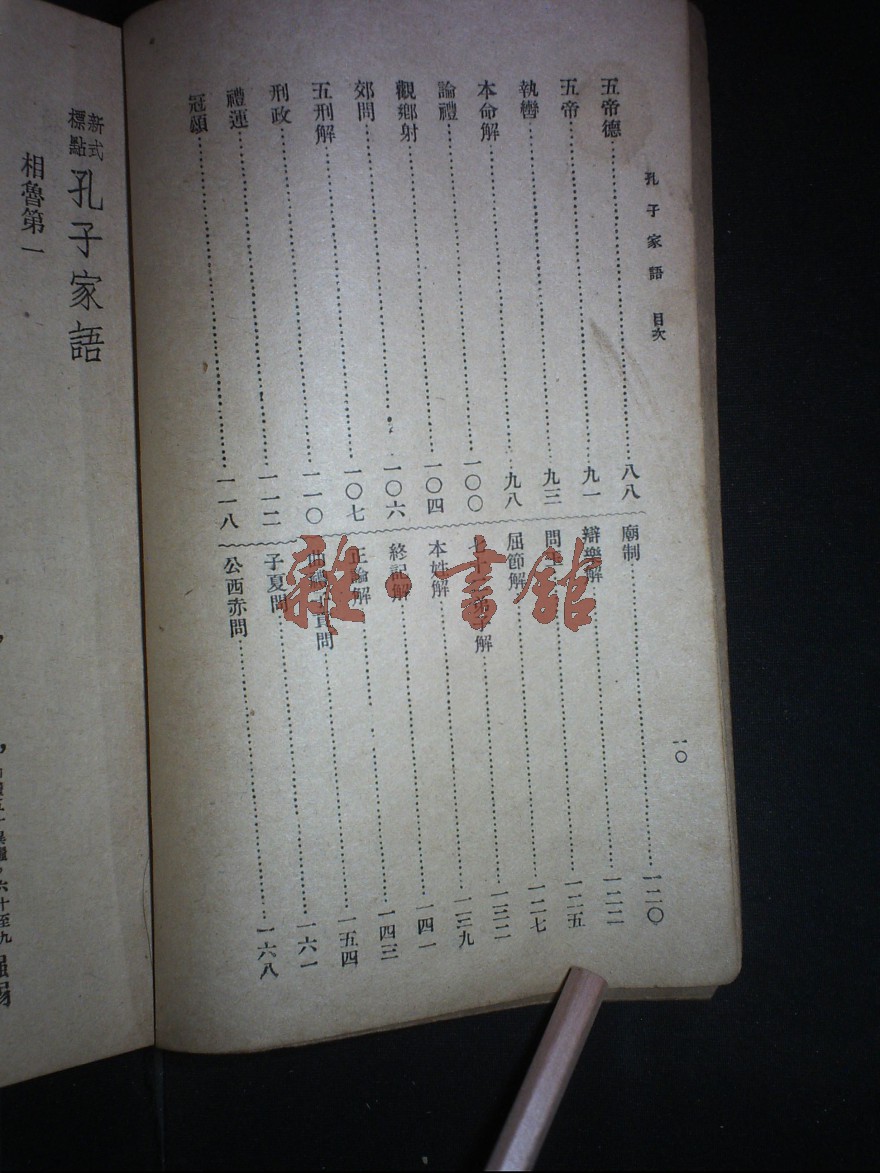 孔子家語 目次
五帝德 八八
五帝 九一
執轡 九三
本命解 九八
論禮 一〇〇
觀鄉射 一〇四
郊問 一〇六
五刑解 一〇七
刑政 一一〇
禮運 一一二
冠頌 一一八
廟制 一二〇
辯樂解 一二二
問玉 一二五
屈節解 一二七
七十二弟子解 一三二
本姓解 一三九
終記解 一四一
正論解 一四三
曲禮子貢問 一五四
子夏問 一六一
公西赤問 一六八
一〇
新式標點 孔子家語
相魯第一
六十至九
雜·書館